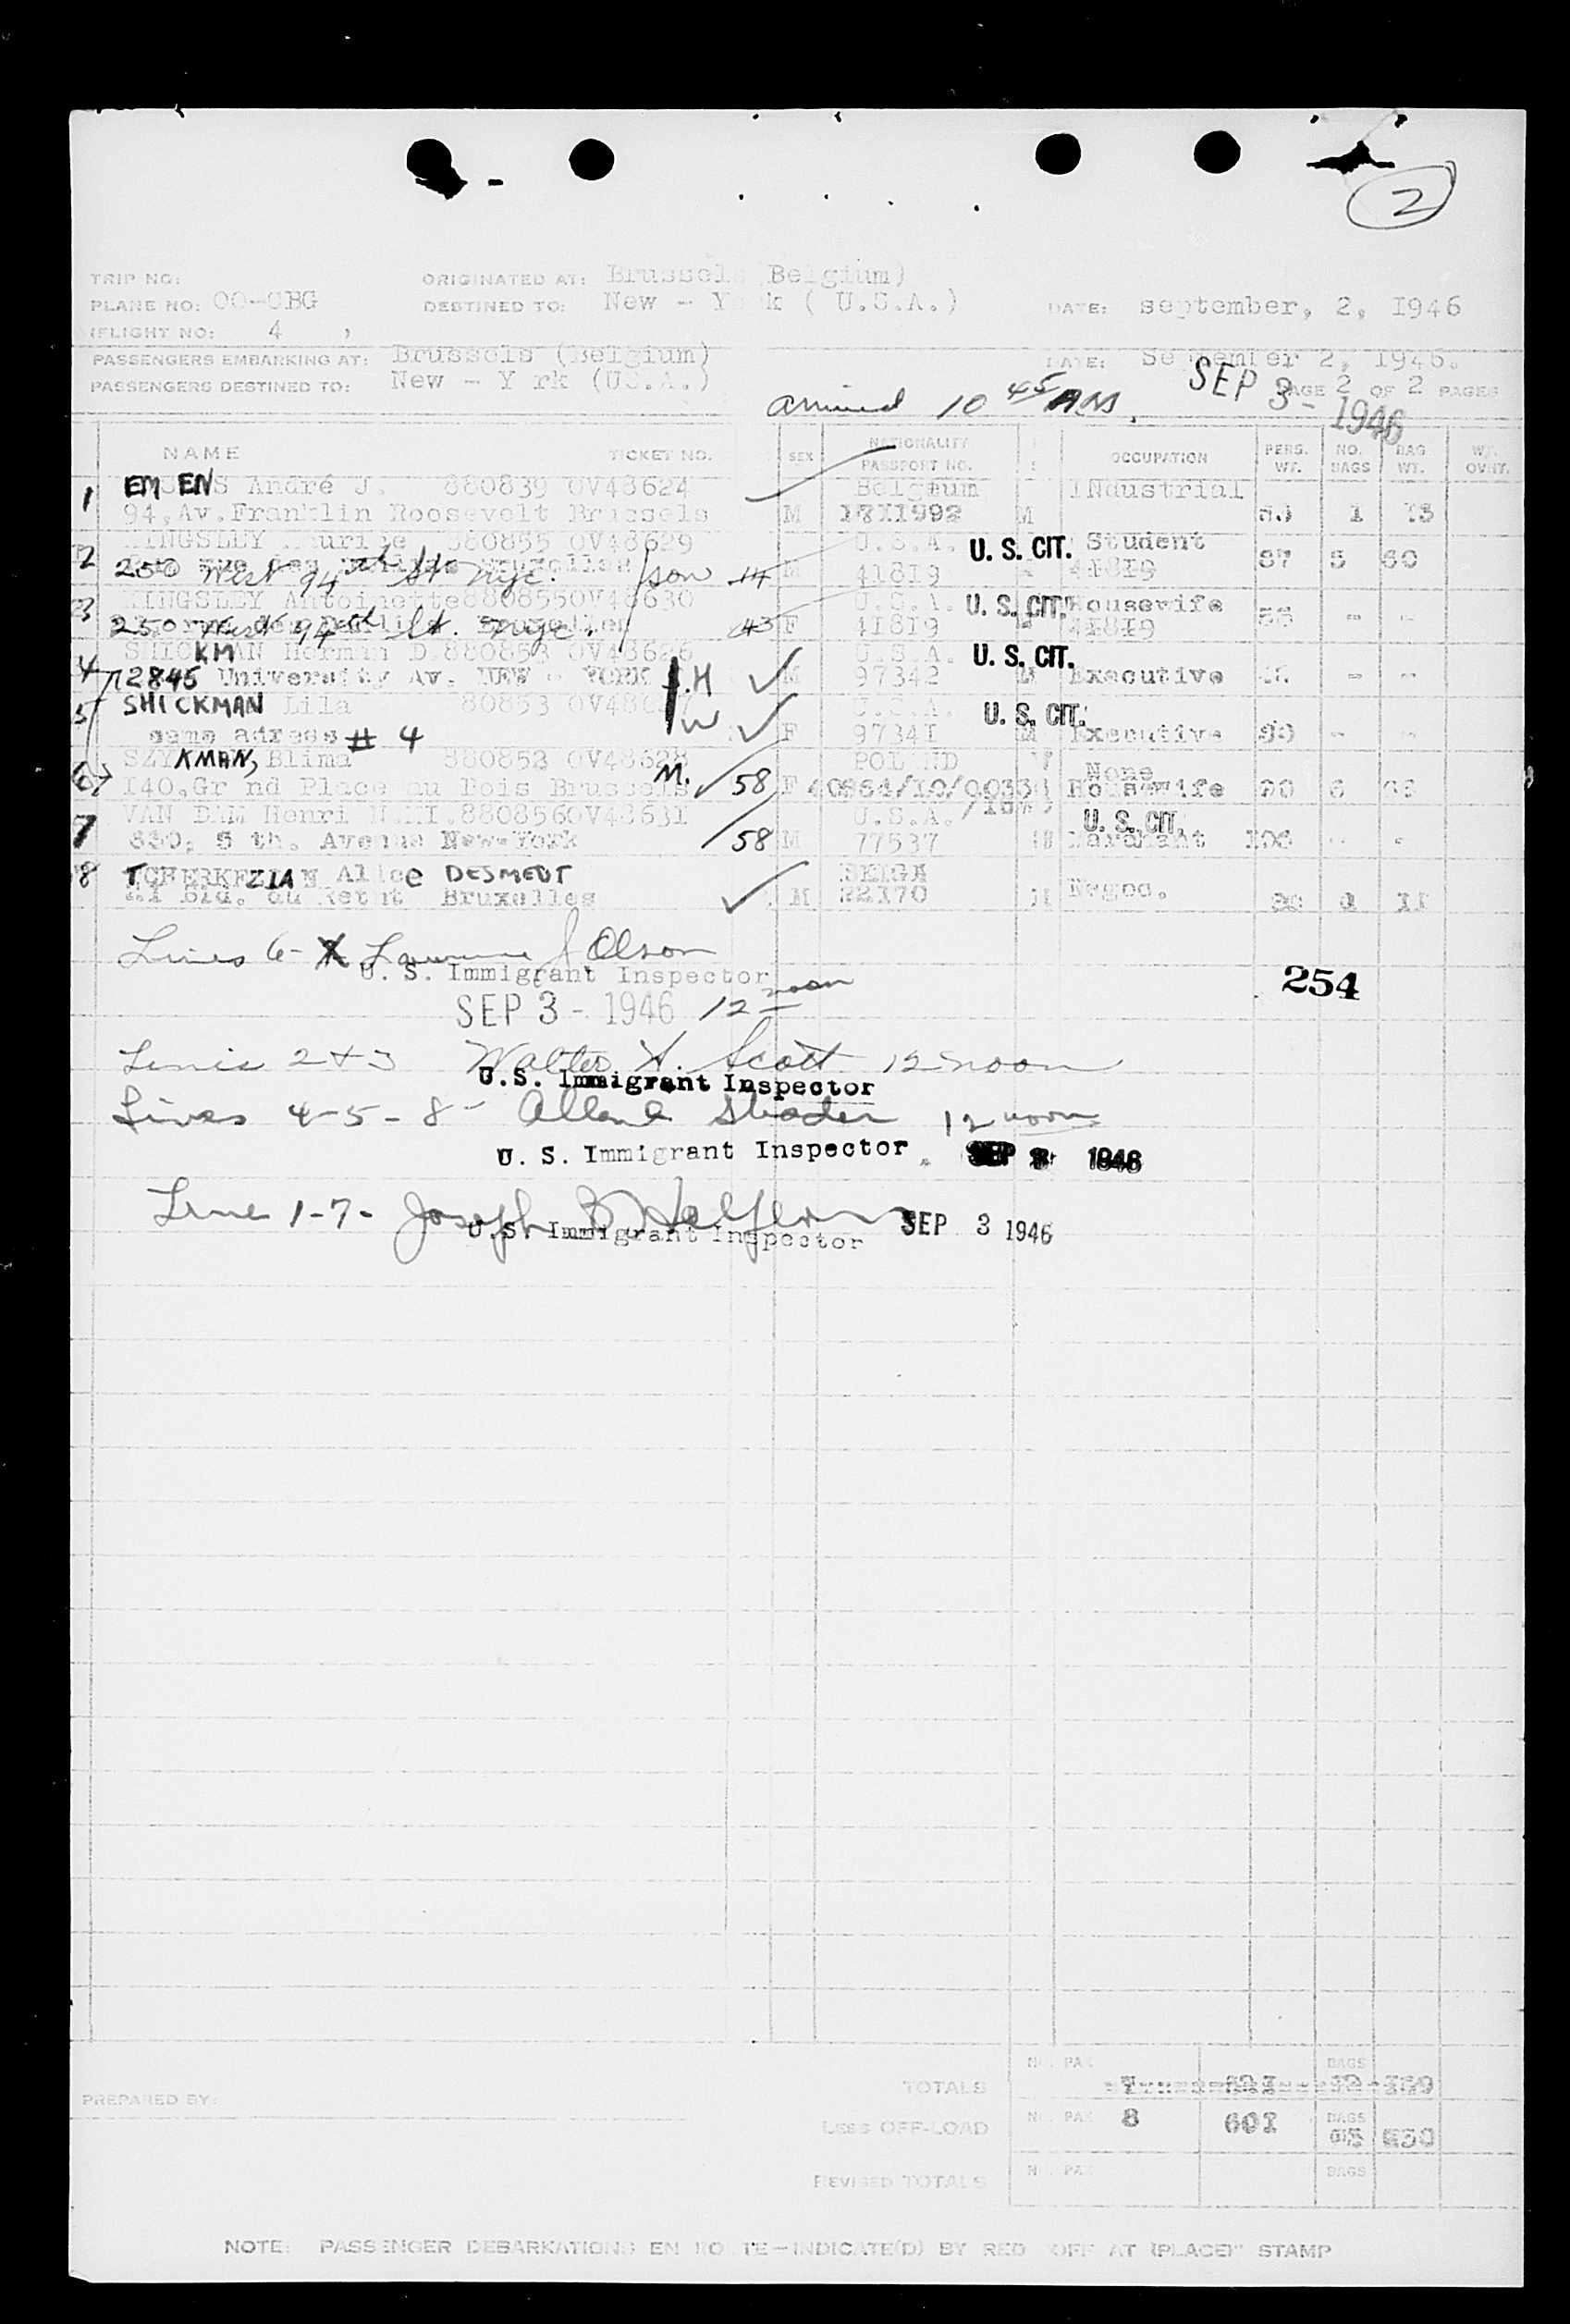 2
TRIP NO:
ORIGINATED AT: Brussels Belgium)
PLANE NO: OO-CBG
DESTINED TO: New - Y k ( U.S.A.)
DATE: september, 2, 1946
FLIGHT NO: 4
PASSENGERS EMBARKING AT: Brussels (Belgium)
DATE: September 2, 1946.
PASSENGERS DESTINED TO: New - Y rk (U.S.A.)
SEP 3 - 1946
PAGE 2 OF 2 PAGES
arrived 10 45 AM.
NAME TICKET NO. SEX NATIONALITY PASSPORT NO. OCCUPATION PERS. WT. NO. BAGS BAG WT. WT. OVHT.
1 EM EN S André J. 880839 OV48624 Belgium Industrial
94, Av. Franklin Roosevelt Brussels M M 1
2 KINGSLEY Maurice 880855 OV48629 U.S.A. U. S. CIT. Student
250 West 94th St NYC. son 14 M 41819 41819 87 5 60
3 KINGSLEY Antoinette 880855 OV48630 U.S.A. U. S. CIT. Housewife
250 West 94th St. NYC. 43 F 41819 41819 - -
4 SHICKMAN Herman D. 880853 OV48626 U.S.A. U. S. CIT.
2845 University Av. NEW - YORK H M 97342 M Executive - -
5 SHICKMAN Lila 80853 U.S.A. U. S. CIT.
same adress # 4 W F 97341 M Executive - -
6 SZYKMAN, Blima 880853 OV48628 POL ND None
140, Gr nd Place au Bois Brussels M. 58 F Housewife 6
7 VAN DAM Henri 880856 OV48631 U.S.A. U. S. CIT.
630, 5 th. Avenue New-York 58 M 77537 - -
8 TCHERKEZIAN Alice DESMEDT
Bld. du Bruxelles M 22170 Negoc. 11
Lines 6- Lawrence J Olson
U. S. Immigrant Inspector
254
SEP 3 - 1946 12 noon
Lines 2 & 3 Walter Scott 12 noon
U.S. Immigrant Inspector
Lines 4-5-8- Shader 12 noon
U. S. Immigrant Inspector SEP 3 1946
Line 1-7- Joseph
U.S. Immigrant Inspector SEP 3 1946
NO. PAX BAGS
TOTALS
PREPARED BY:
LESS OFF-LOAD NO. PAX 8 601 BAGS
REVISED TOTALS NO. PAX BAGS
NOTE: PASSENGER DEBARKATIONS EN ROUTE-INDICATE(D) BY RED "OFF AT (PLACE)" STAMP